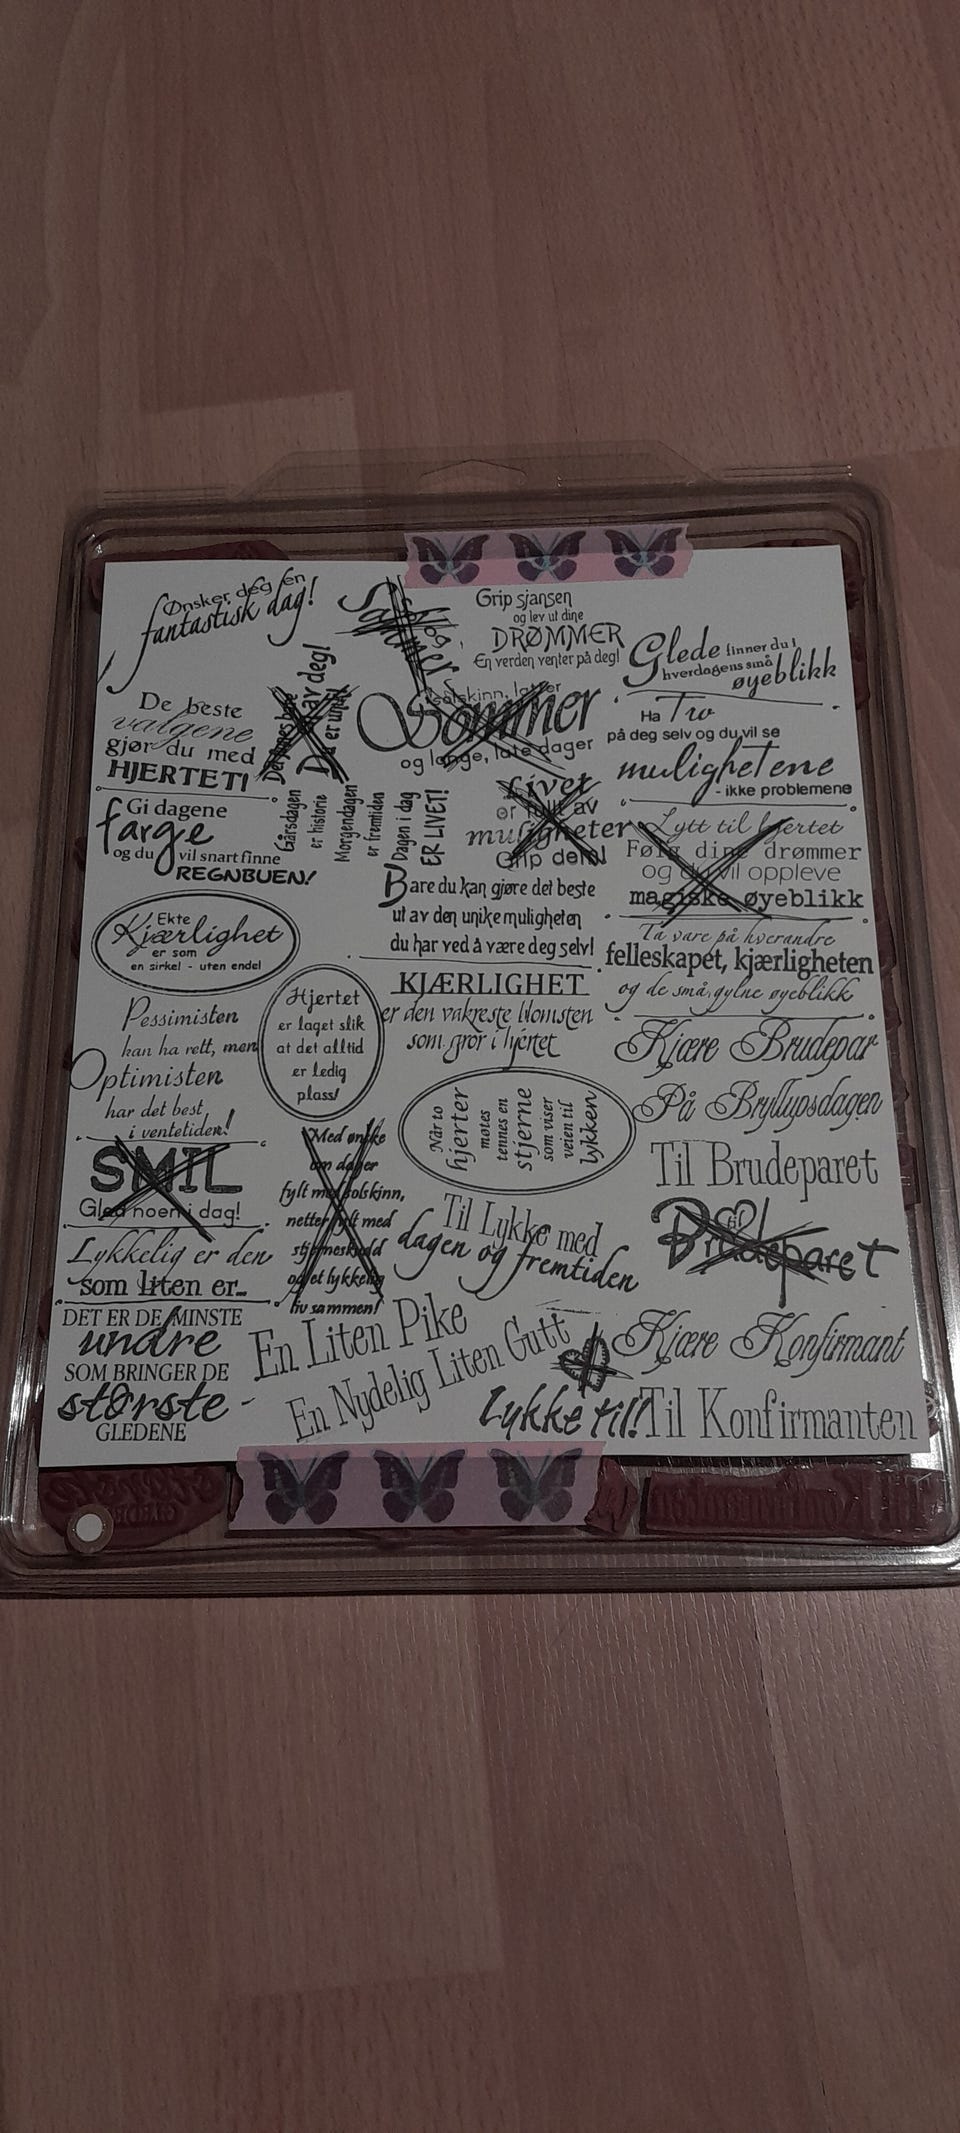 Ønsker deg en
fantastisk dag!
Sol og
Sommer
Grip sjansen
og lev ut dine
DRØMMER
En verden venter på deg!
Glede finner du i
hverdagens små
øyeblikk
De beste
valgene
gjør du med
HJERTET!
Det finnes bare
av deg!
Du er unik!
Solskinn, latter
Sommer
og lange, late dager
Ha Tro
på deg selv og du vil se
mulighetene
- ikke problemene
Gi dagene
farge
og du vil snart finne
REGNBUEN!
Gårsdagen
er historie
Morgendagen
er fremtiden
Dagen i dag
ER LIVET!
Livet
er fullt av
muligheter
Grip dem!
Lytt til hjertet
Følg dine drømmer
og du vil oppleve
magiske øyeblikk
Bare du kan gjøre det beste
ut av den unike muligheten
du har ved å være deg selv!
Ta vare på hverandre
felleskapet, kjærligheten
og de små, gylne øyeblikk
Ekte
Kjærlighet
er som
en sirkel - uten ende!
Hjertet
er laget slik
at det alltid
er ledig
plass!
KJÆRLIGHET
er den vakreste blomsten
som gror i hjertet
Kjære Brudepar
Pessimisten
kan ha rett, men
Optimisten
har det best
i ventetiden!
Når to
hjerter
møtes
tennes en
stjerne
som viser
veien til
lykken
På Bryllupsdagen
Til Brudeparet
SMIL
Gled noen i dag!
Med ønske
om dager
fylt med solskinn,
netter fylt med
stjerneskudd
og et lykkelig
liv sammen!
Til Lykke med
dagen og fremtiden
til
Brudeparet
Lykkelig er den
som liten er...
DET ER DE MINSTE
undre
SOM BRINGER DE
største
GLEDENE
En Liten Pike
En Nydelig Liten Gutt
Kjære Konfirmant
Lykke til!
Til Konfirmanten